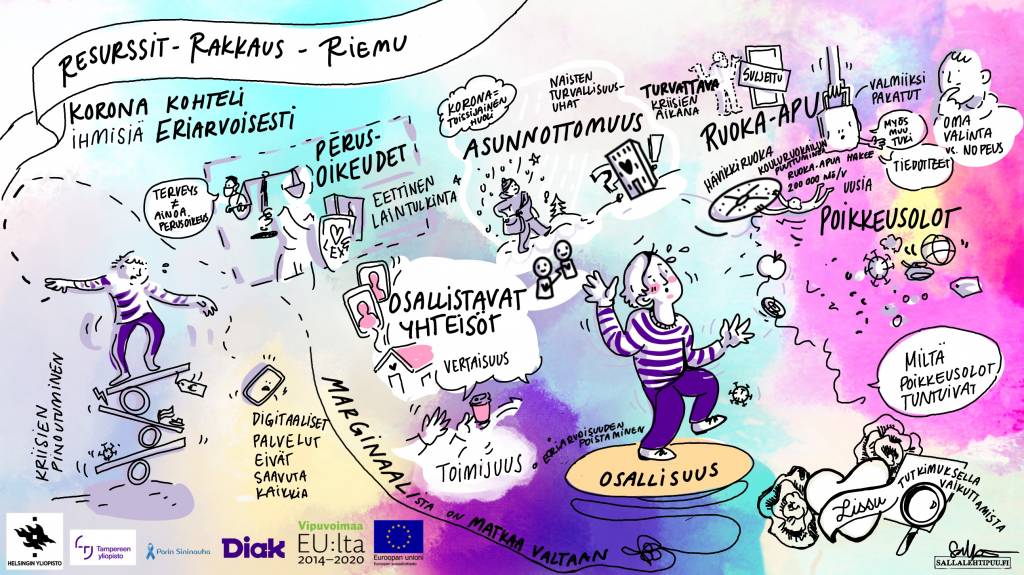 RESURSSIT - RAKKAUS - RIEMU
KORONA KOHTELI
IHMISIÄ ERIARVOISESTI
TERVEYS
≠
AINOA
PERUSOIKEUS
PERUS-
OIKEUDET
EETTINEN
LAINTULKINTA
KORONA=
TOISSIJAINEN
HUOLI
NAISTEN
TURVALLISUUS-
UHAT
ASUNNOTTOMUUS
?
!
TURVATTAVA
KRIISIEN
AIKANA
SULJETTU
RUOKA-APU
VALMIIKSI
PAKATUT
MYÖS
MUU
TUKI
TIEDOTTEET
OMA
VALINTA
vs. NOPEUS
HÄVIKKIRUOKA
KOULURUOKAILUN
PUUTTUMINEN
RUOKA-APUA HAKEE
200 000 HLÖ/V
UUSIA
POIKKEUSOLOT
OSALLISTAVAT
YHTEISÖT
VERTAISUUS
TOIMIJUUS
KRIISIEN
PINOUTUMINEN
DIGITAALISET
PALVELUT
EIVÄT
SAAVUTA
KAIKKIA
MARGINAALISTA ON MATKAA VALTAAN
ERIARVOISUUDEN
POISTAMINEN
OSALLISUUS
MILTÄ
POIKKEUSOLOT
TUNTUIVAT
Lissu
TUTKIMUKSELLA
VAIKUTTAMISTA
HELSINGIN YLIOPISTO
Tampereen
yliopisto
Porin Sininauha
Diak
Vipuvoimaa
EU:lta
2014–2020
Euroopan unioni
SALLALEHTIPUU.FI